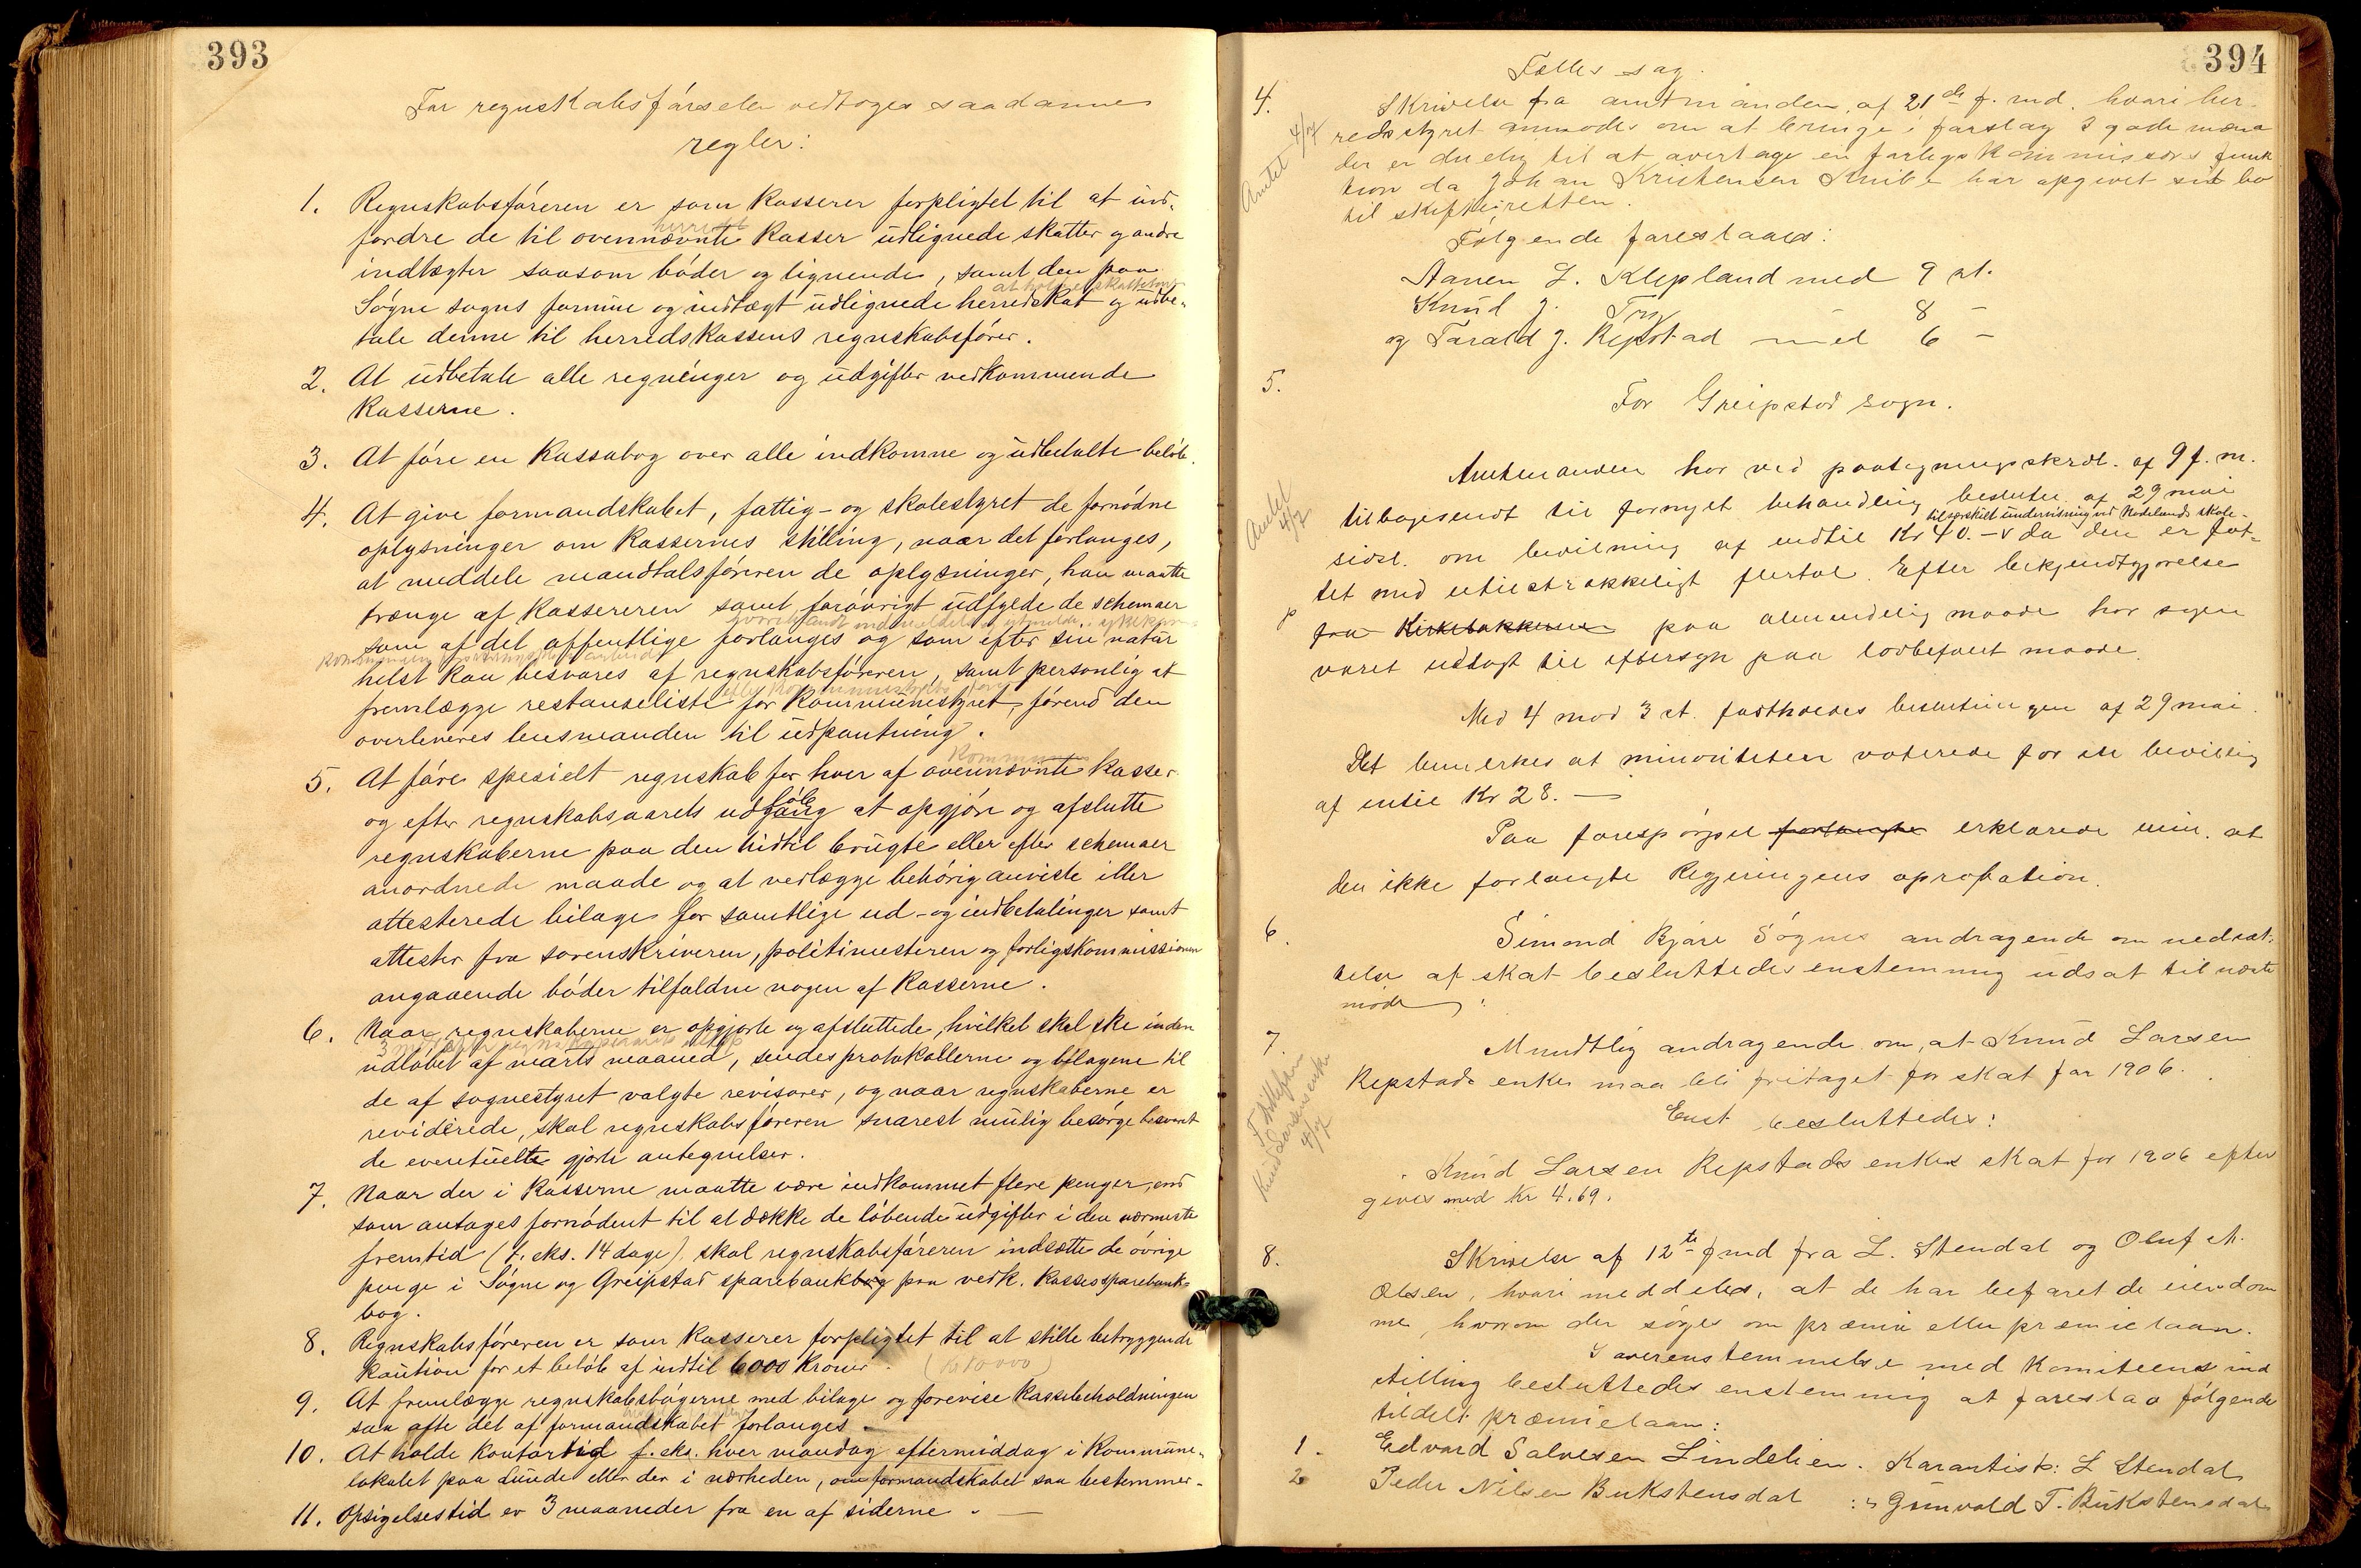 393
For regnskabsførselen vedtoges saadanne
regler:
1. Regnskabsføreren er som Kasserer forpligtet til at ind-
herredets
fordre de til ovennævnte Kasser udlignede skatter og andre
indtægter saasom bøder og lignende, samt den paa
Søgne sogns formue og indtægt udlignede herredskat og udbe-
tale denne til herredskassens regnskabsfører.
2. At udbetale alle regninger og udgifter vedkommende
Kasserne.
3. At føre en Kassabog over alle indkomne og udbetalte beløb.
4. At give formandskabet, fattig- og skolestyret de fornødne
oplysninger om Kassernes stilling, naar det forlanges,
at meddele mandtalsføreren de oplysninger, han maatte
trænge af Kassereren samt forøvrigt udfylde de schemaer
som af det offentlige forlanges og som efter sin natur
helst kan besvares af regnskabsføreren, samt personlig at
fremlægge restanseliste for Kommunestyret, førend den
overleveres lensmanden til udpantning.
Kommunens
5. At føre spesielt regnskab for hver af ovennævnte kasser
og efter regnskabsaarets udgang at opgjøre og afslutte
regnskaberne paa den hidtil brugte eller efter schemaer
anordnede maade og at vedlægge behørig anviste eller
attesterede bilage for samtlige ud- og indbetalinger samt
attester fra sorenskriveren, politimesteren og forligskommissionen
angaaende bøder tilfaldne nogen af Kasserne.
6. Naar regnskaberne er opgjorte og afsluttede, hvilket skal ske inden
udløbet af marts maaned, sendes protokollerne og bilagene til
de af sognestyret valgte revisorer, og naar regnskaberne er
reviderede, skal regnskabsføreren snarest mulig besørge besvaret
de eventuelle gjorte antegnelser.
7. Naar der i Kasserne maatte være indkommet flere penger, end
som antages fornødent til at dække de løbende udgifter i den nærmeste
fremtid (f. eks. 14 dage), skal regnskabsføreren indsætte de øvrige
penge i Søgne og Greipstad sparebank paa vedk. Kasses sparebank-
bog.
8. Regnskabsføreren er som Kasserer forpligtet til at stille betryggende
Kaution for et beløb af indtil 6000 Kroner. (Kr 10000)
9. At fremlægge regnskabsbøgerne med bilage og forevise Kassebeholdningen
saa ofte det af formandskabet forlanges.
10. At holde Kontortid f. eks. hver mandag eftermiddag i Kommune-
lokalet paa Lunde eller der i nærheden, om formandskabet saa bestemmer.
11. Opsigelsestid er 3 maaneder fra en af siderne. —
394
Fælles sag.
4. Skrivelse fra amtmanden af 21de f. md. hvori her-
redsstyret anmodes om at bringe i forslag 3 gode mænd
der er duelig til at overtage en forligskommissærs funk
tion da Johan Kristensen Knibe har opgivet sit bo
til skifteretten.
Amtet 4/7
Følgende foreslaaes:
Aanen L. Klepland med 9 st.
Knud J. Try 8 —
og Tarald J. Repstad med 6 —
5. For Greipstad sogn.
Amtet 4/7
Amtmanden har ved paategningsskrivl. af 9 f. m.
tilbagesendt til fornyet behandling beslutn. af 29 mai
til særskilt undervisning ved Nodelands skole-
sidst. om bevilning af indtil Kr 40.- da den er fat-
tet med utilstrækkeligt flertal. Efter bekjendtgjørelse
fra Kirkebakken paa almindelig maade har sagen
været udlagt til eftersyn paa lovbefalet maade.
Med 4 mod 3 st. fastholdes beslutningen af 29 mai.
Det bemerkes at minoriteten voterede for en bevillig
af indtil Kr 28. —
Paa forespørgsel forlangte erklærede min. at
den ikke forlangte Regjeringens aprobation.
6. Simond Bjåre Søgnes andragende om nedsæt-
telse af skat besluttedes enstemmig udsat til næste
møde.
7. Mundtlig andragende om, at Knud Larsen
Repstads enke maa bli fritaget for skat for 1906.
Enst. besluttedes:
Knud Larsen Repstads enkes skat for 1906 efter
gives med Kr 4.69.
Knud Larsens enke
4/7
8. Skrivelse af 12te f md fra L. Stendal og Oluf A.
Olsen, hvori meddeles, at de har befaret de eiendom
me, hvorom der søges om præmie eller præmielaan.
I overenstemmelse med Komiteens ind
stilling besluttedes enstemmig at foreslaa følgende
tildelt præmielaan:
1. Edvard Salvesen Lindelien. Karantist: L Stendal
2. Peder Nilsen Bukstensdal :" Gunvald T. Bukstensdal